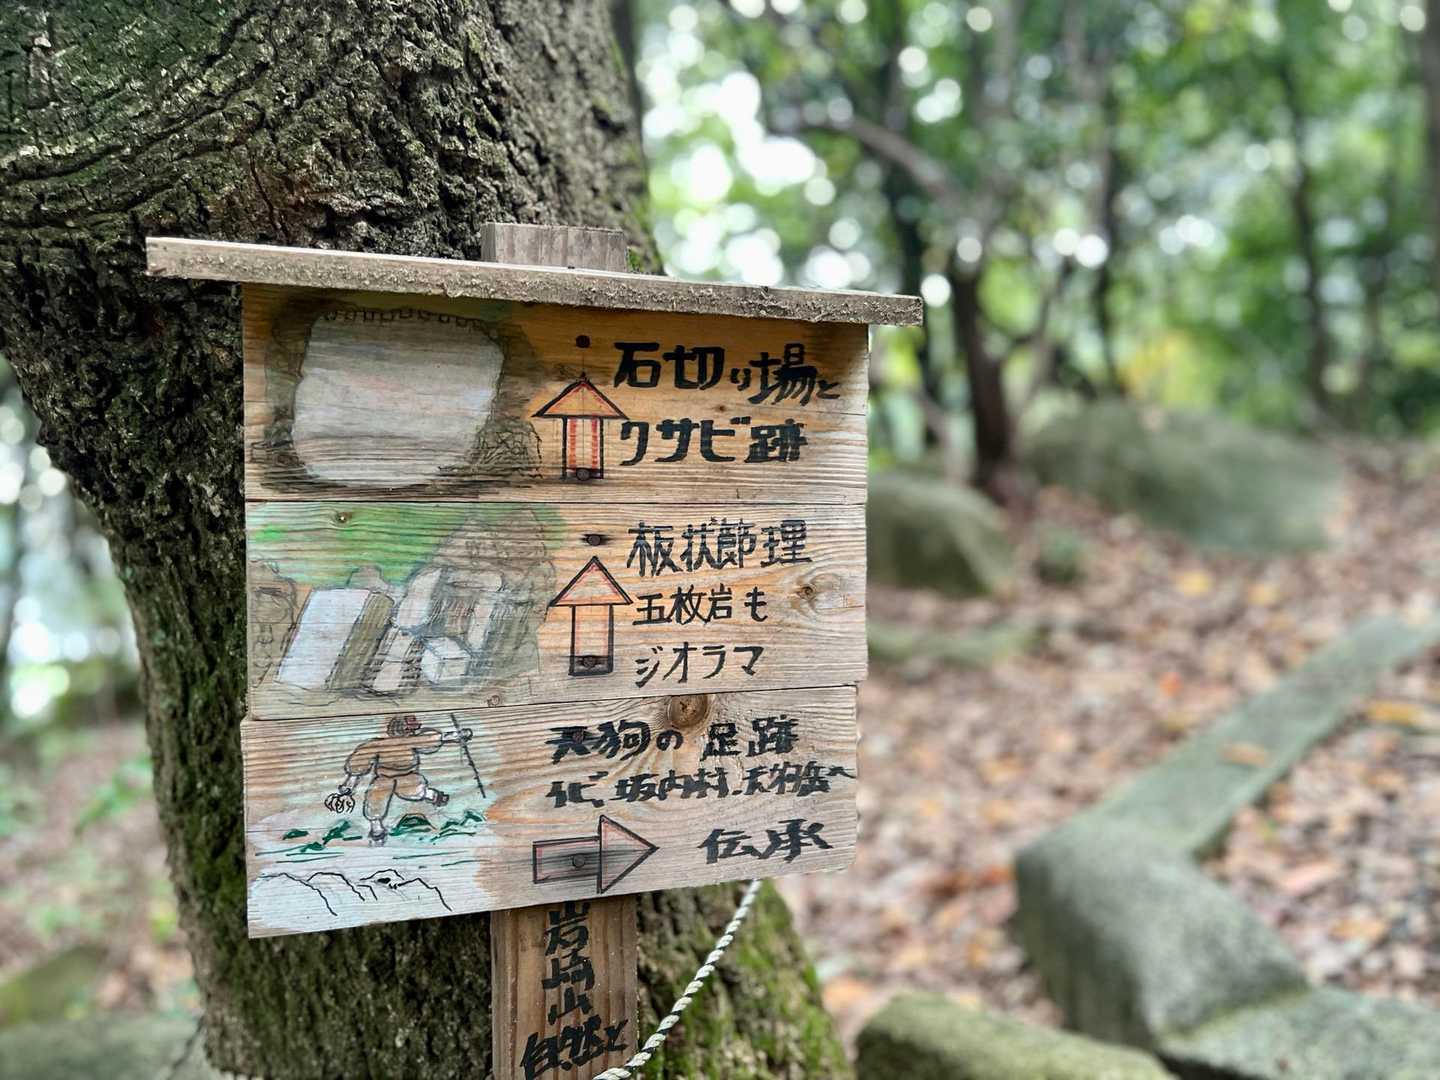 石切り場と
クサビ跡
板状節理
五枚岩も
ジオラマ
天狗の足跡
坂内村
伝承
岩崎山
自然と